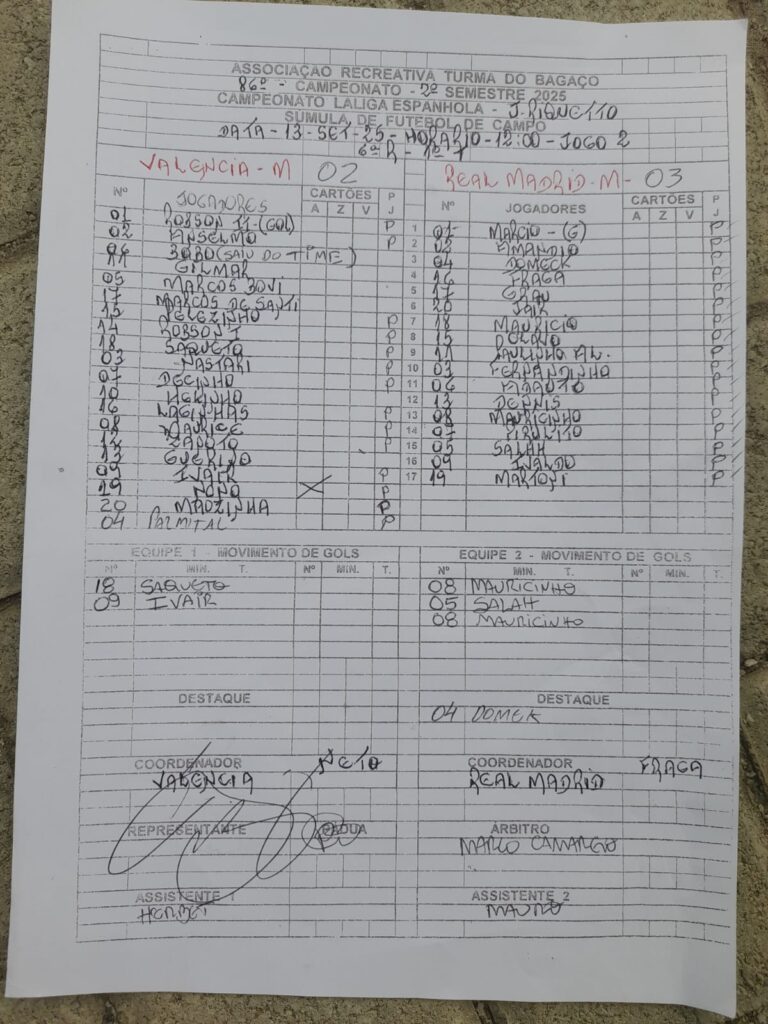 ASSOCIAÇÃO RECREATIVA TURMA DO BAGAÇO
86º - CAMPEONATO - 2º SEMESTRE 2025
CAMPEONATO LALIGA ESPANHOLA - J. RIQUETTO
SUMULA DE FUTEBOL DE CAMPO
DATA - 13-SET-25 - HORARIO - 12:00 - JOGO 2
6ª R - 1º T
VALENCIA - M 02
Nº JOGADORES CARTÕES P
A Z V J
01 ROBSON II-(GOL) P
02 ANSELMO P
BOBO (SAIU DO TIME)
11 GILMAR
05 MARCOS BOVI
17 MARCOS DE SANTI
15 TELEZINHO P
14 ROBSON I P
18 SAQUETO P
03 NASTARI P
07 DECINHO P
10 HERINHO
16 LAGINHAS P
08 MAURICE P
12 SAPOTO P
13 GUERINO
09 IVAIR P
19 NONO X P
20 MAOZINHA P
04 PALMITAL P
REAL MADRID - M - 03
Nº JOGADORES CARTÕES P
A Z V J
1 01 MARCIO - (G) P
2 02 AMANDIO P
3 04 DOMECK P
4 16 FRAGA P
5 17 GRAU P
6 20 JAIR P
7 18 MAURICIO P
8 15 P
9 11 PAULINHO AL. P
10 03 FERNANDINHO P
11 06 P
12 13 DENNIS P
13 08 MAURICINHO P
14 07 PIRULITO P
15 05 SALAH P
16 09 IVALDO P
17 19 MARTONI P
EQUIPE 1 - MOVIMENTO DE GOLS
Nº MIN. T. Nº MIN. T.
18 SAQUETO
09 IVAIR
EQUIPE 2 - MOVIMENTO DE GOLS
Nº MIN. T. Nº MIN. T.
08 MAURICINHO
05 SALAH
08 MAURICINHO
DESTAQUE
DESTAQUE
04 DOMEK
COORDENADOR NETO
VALENCIA
COORDENADOR FRAGA
REAL MADRID
REPRESENTANTE
ÁRBITRO
MARCO CAMARGO
ASSISTENTE 1
HERBET
ASSISTENTE 2
MAURO